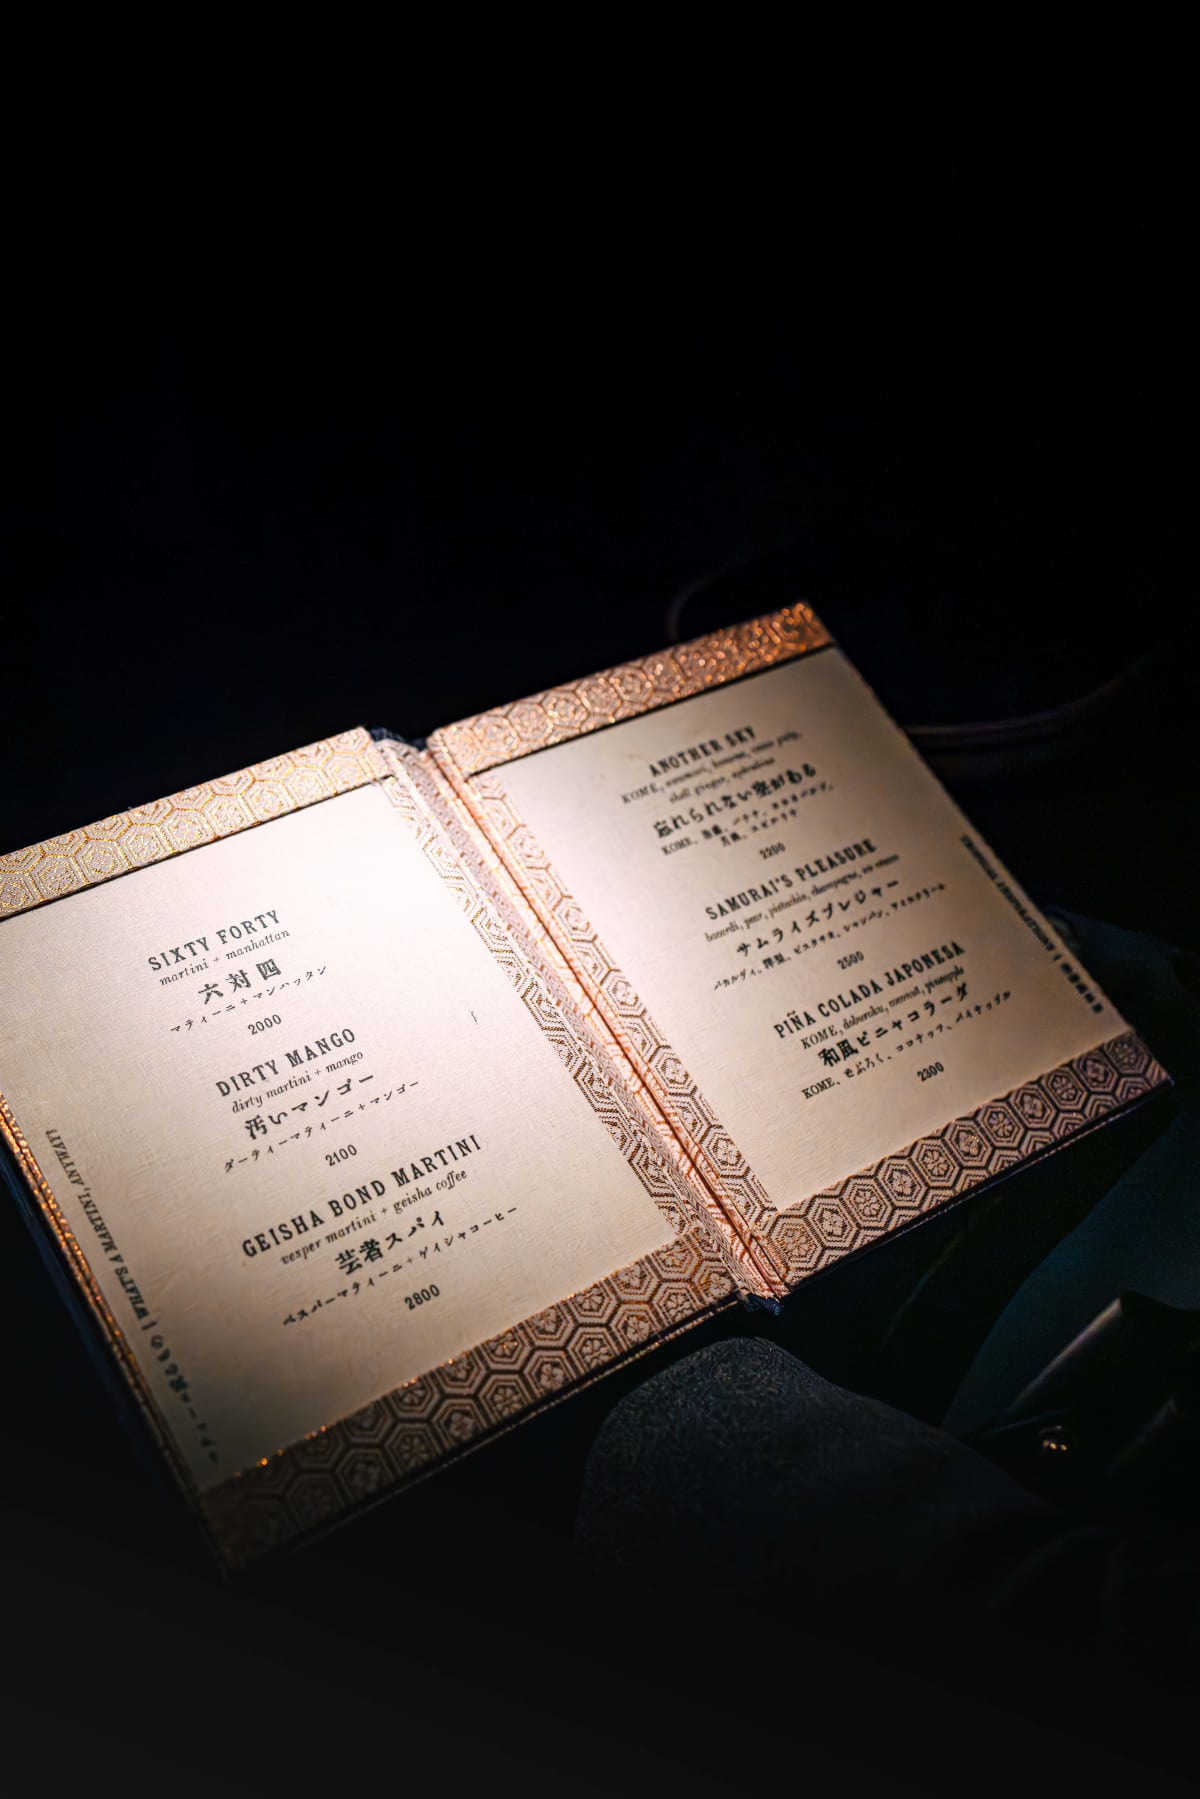 SIXTY FORTY
martini + manhattan
六対四
マティーニ+マンハッタン
2000
DIRTY MANGO
dirty martini + mango
汚いマンゴー
ダーティーマティーニ+マンゴー
2100
GEISHA BOND MARTINI
vesper martini + geisha coffee
芸者スパイ
ベスパーマティーニ+ゲイシャコーヒー
2800
WHAT'S A MARTINI, ANYWAY?
ANOTHER SKY
KOME, awamori, banana, cacao pulp,
shell ginger, spirulina
忘れられない空がある
KOME、泡盛、バナナ、カカオパルプ、
月桃、スピルリナ
2200
SAMURAI'S PLEASURE
bacardi, pear, pistachio, champagne,
サムライズプレジャー
バカルディ、洋梨、ピスタチオ、シャンパン、
2500
PIÑA COLADA JAPONESA
KOME, doburoku, coconut, pineapple
和風ピニャコラーダ
KOME、どぶろく、ココナッツ、パイナップル
2300